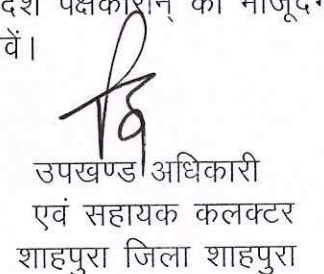 पक्षकारान् की मौजूद
वें।
उपखण्ड अधिकारी
एवं सहायक कलक्टर
शाहपुरा जिला शाहपुरा